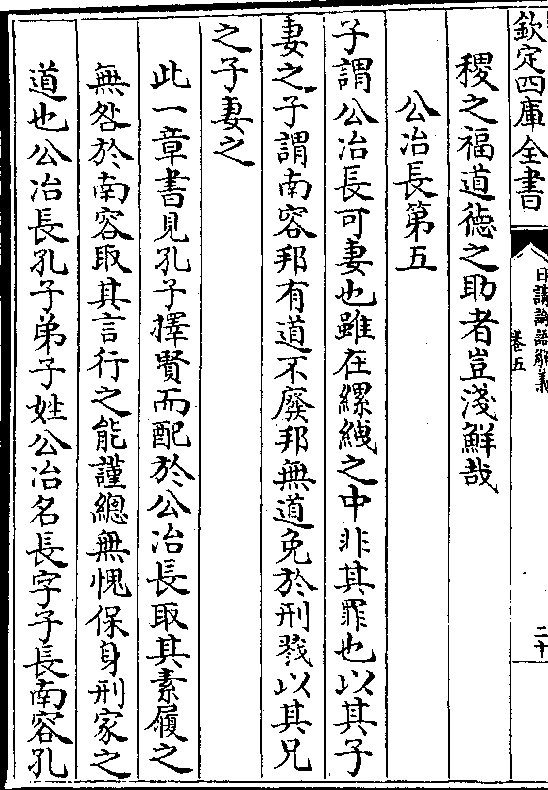 欽定四庫全書
日講論語解義
卷五
二十
稷之福道德之助者豈淺鮮哉
公冶長第五
子謂公冶長可妻也雖在縲絏之中非其罪也以其子
妻之子謂南容邦有道不廢邦無道免於刑戮以其兄
之子妻之
此一章書見孔子擇賢而配於公冶長取其素履之
無咎於南容取其言行之能謹總無愧保身刑家之
道也公冶長孔子弟子姓公冶名長字子長南容孔